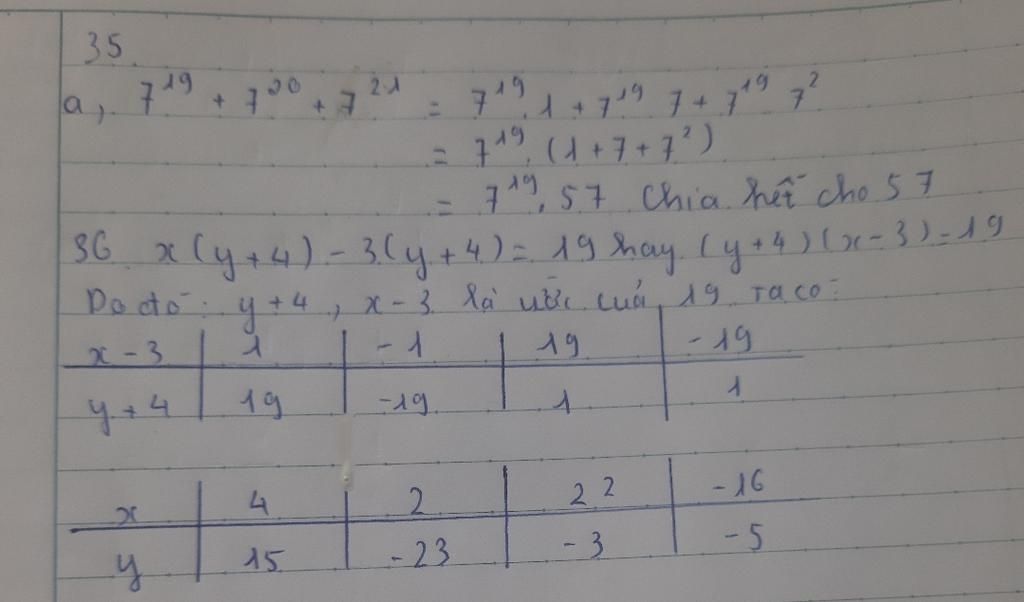 35
a, 7^19 + 7^20 + 7^21 = 7^19.1 + 7^19 7 + 7^19 7^2
= 7^19.(1+7+7^2)
= 7^19.57 Chia hết cho 57
36 x(y+4) - 3(y+4) = 19 hay (y+4)(x-3) = 19
Do đó: y+4, x-3 là ước cuả 19 ta có:
x-3 | 1 | -1 | 19 | -19
y+4 | 19 | -19 | 1 | 1
x | 4 | 2 | 22 | -16
y | 15 | -23 | -3 | -5